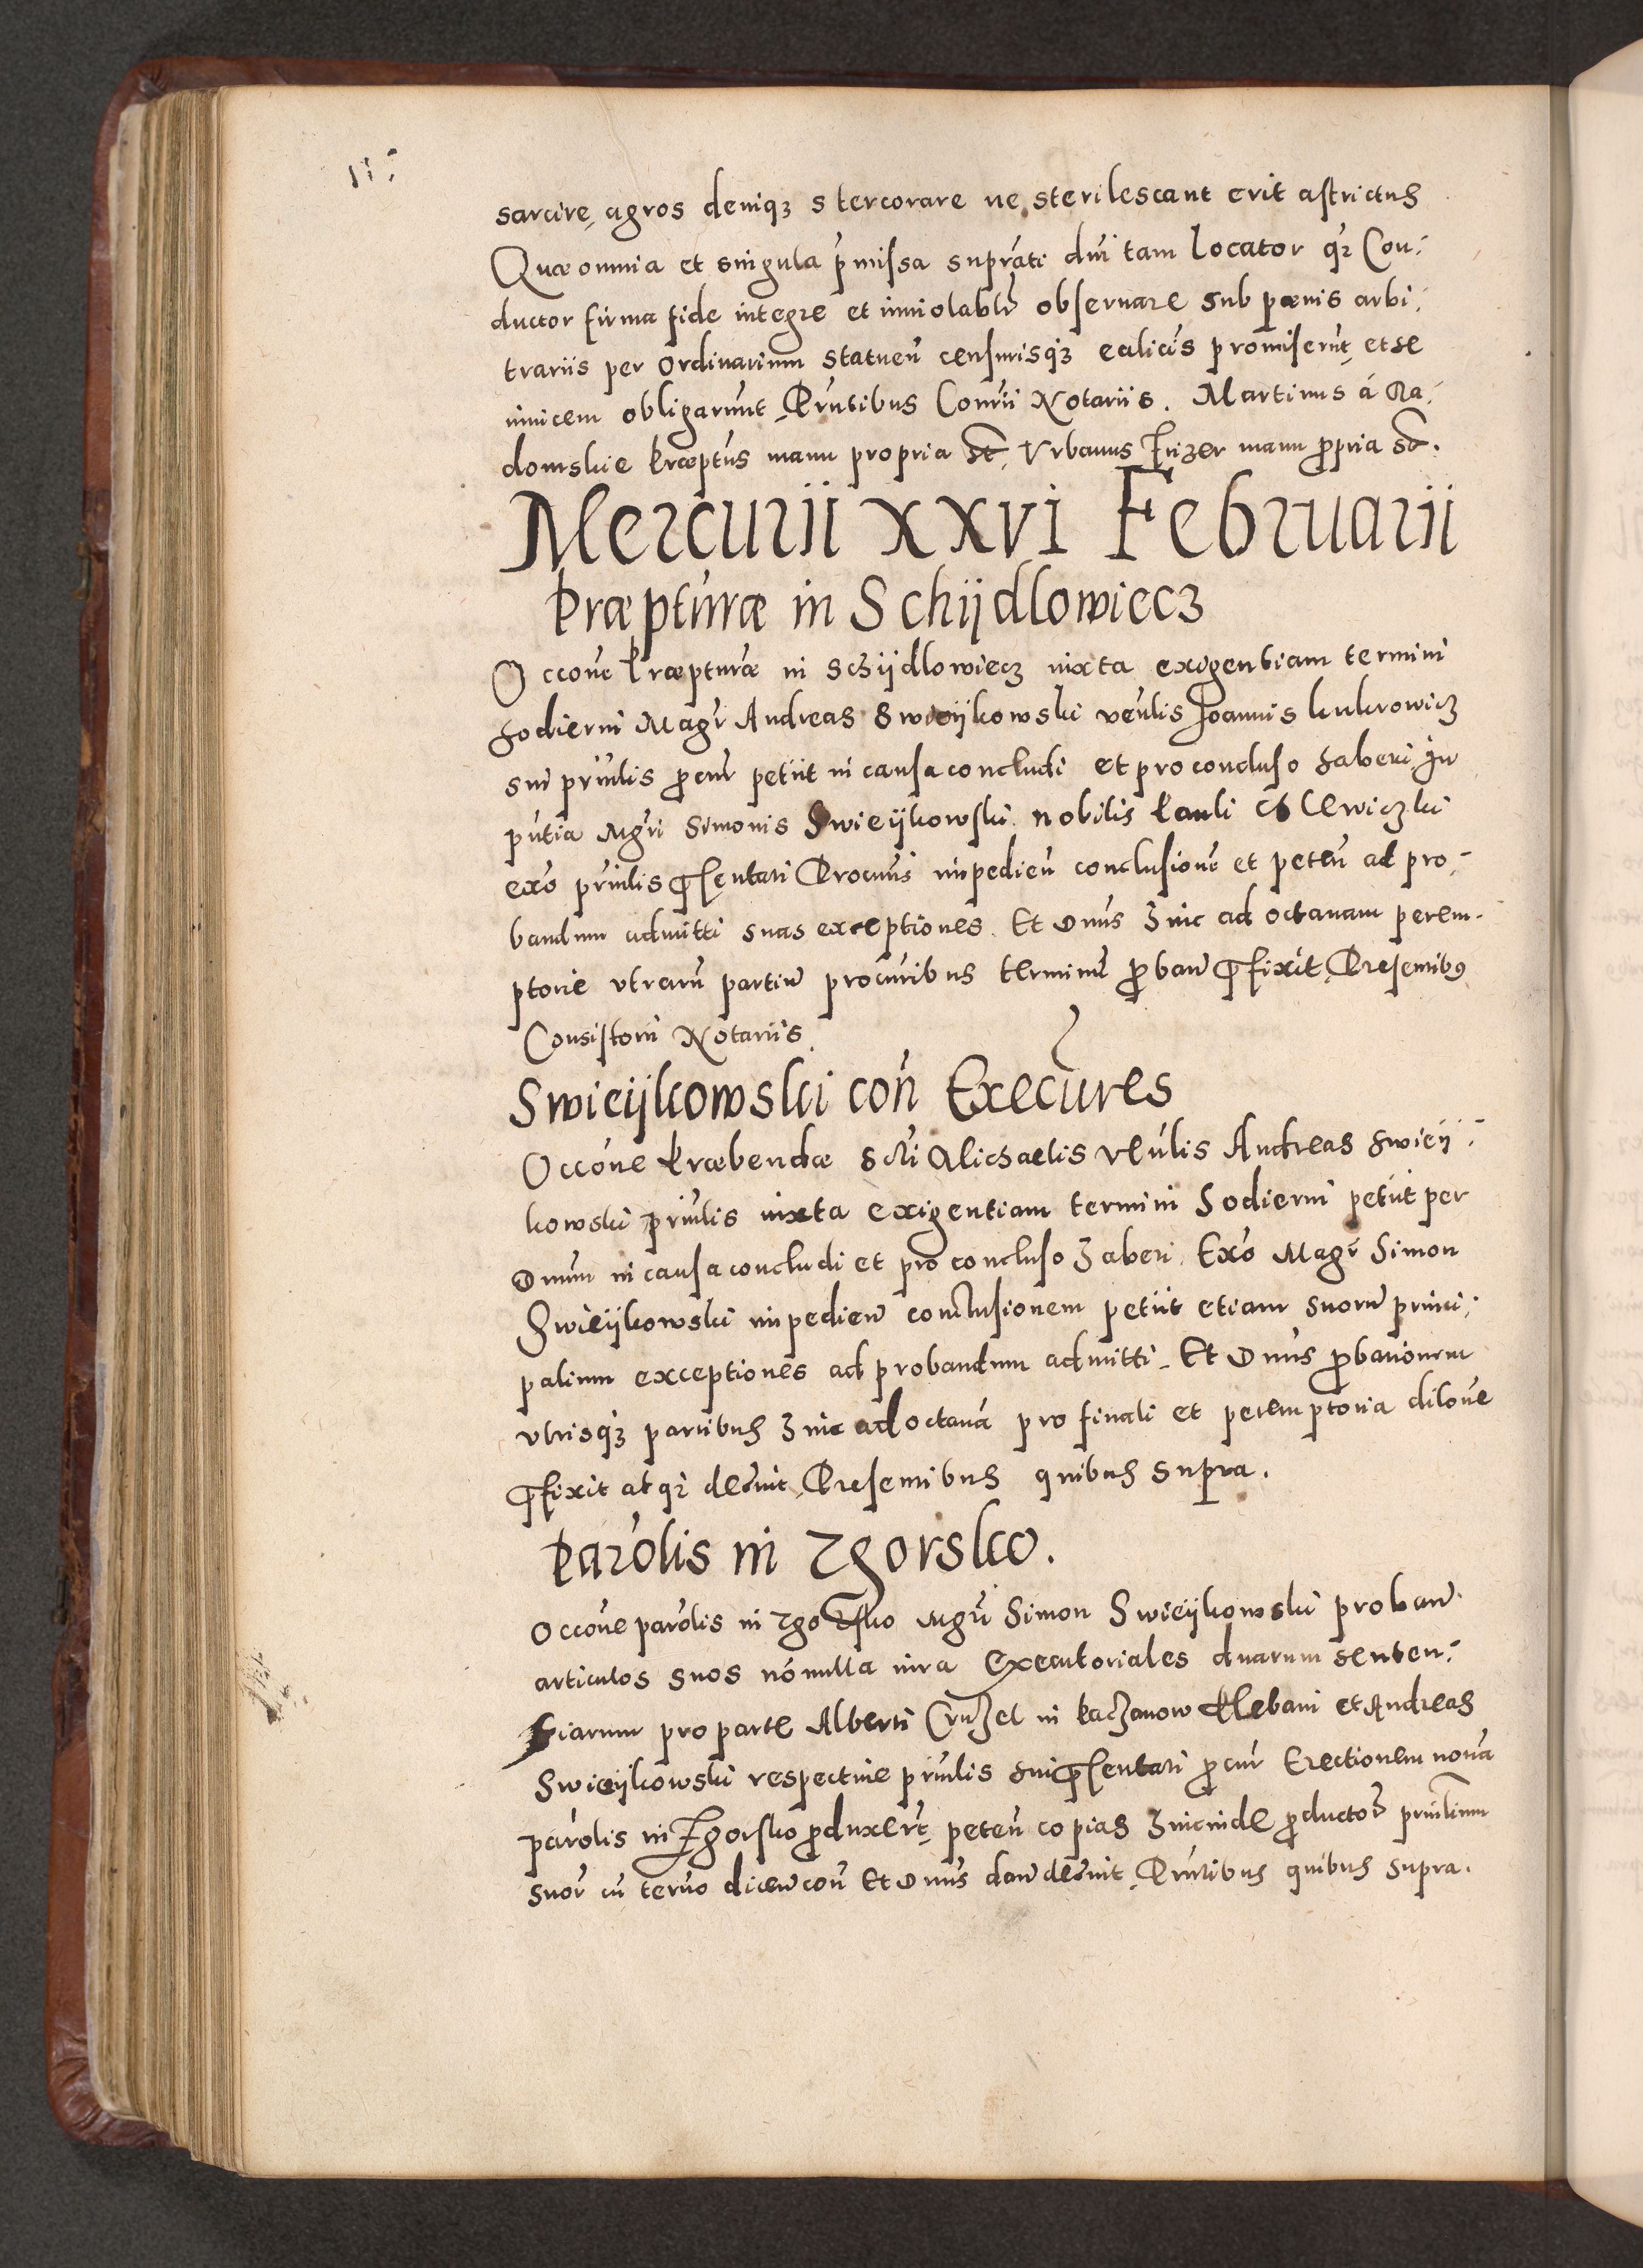 sarcire, agros deniqȝ stercorare ne sterilescant erit astrictus
Quæ omnia et singula p̄missa supráti dńi tam Locator qȝ Con:
ductor firma fide integre et inuiolablr̃ obseruare sub pænis arbi:
trariis per Ordinarium statueń censurisqȝ ecclicis promiserūt, et se
inuicem obligarunt, Prńtibus Consrii Notariis. Martinus á Ra:
domskie Præptus manu propria sst, Vrbanus Frizer manu ꝓpria sst.
Mercurii XXVI Februarii
Præpturæ in Schijdlowiecz
Occone Præpturæ in Schijdlowiecz iuxta exigentiam termini
hodierni Magr̃ Andreas Swieijkowski veńlis Joannis Kukrowicz
sui prinlis ꝓcur petiit in causa concludi et pro concluso haberi, In
pńtia Mgri Simonis Swieijkowski nobilis Pauli Clewiczki
exó prinlis ꝓsentati Procuris impedień conclusione et peteń ad pro:
bandum admitti suas exceptiones. Et Dnus hinc ad octauam perem-
ptorie vtrarū partiū procuribus terminū ꝓbanⱳ ꝓfixit, Presentibus
Consistorii Notariis.
Swieijkowski coń Execures
Occóne Præbendæ Scti Michaelis veńlis Andreas Swieij:
kowski prinlis iuxta exigentiam termini hodierni petiit per
Dnum in causa concludi et pro concluso haberi. Exó Magr̃ Simon
Swieijkowski impedień conclusionem petiit etiam suorū princi:
palium exceptiones ad probandum admitti. Et Dnus ꝓbationem
vtrisqȝ partibus hinc ad octauá pro finali et peremptoria dilone
ꝓfixit atqȝ decreuit, Presentibus quibus supra.
Parólis in Zgorsko.
Occone parólis in Zgorsko Mgr̃ Simon Swieijkowski probań
articulos suos nónulla iura executoriales duarum senten:
tiarum pro parte Alberti Cruzel in Paczanow Plebani et Andreas
Swieijkowski respectiue prinlis sui ꝓsentati ꝓcur Erectionem noua
parólis in Zgorsko ꝓduxerūt, peteń copias hincinde ꝓductor̃ prinlium
suor̃ cū termo diceń coń Et Dnus dań decreuit, Prńtibus quibus supra.